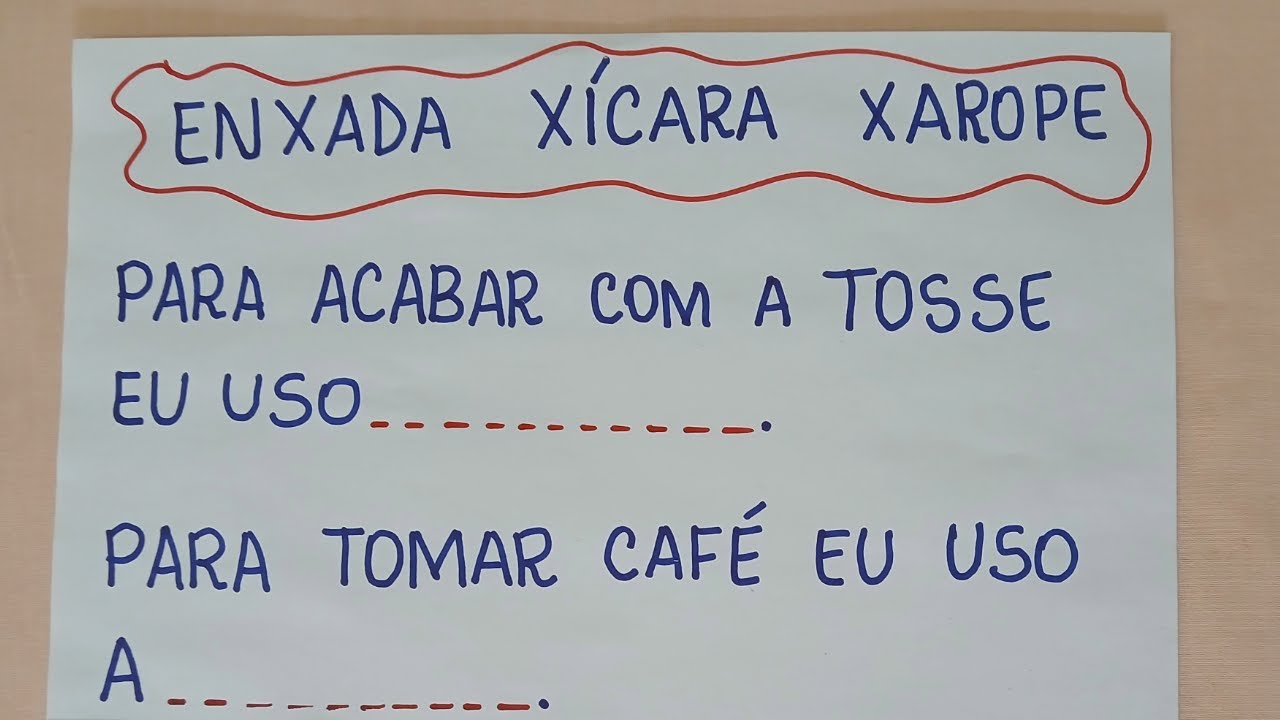 ENXADA XÍCARA XAROPE
PARA ACABAR COM A TOSSE
EU USO___________.
PARA TOMAR CAFÉ EU USO
A __________.